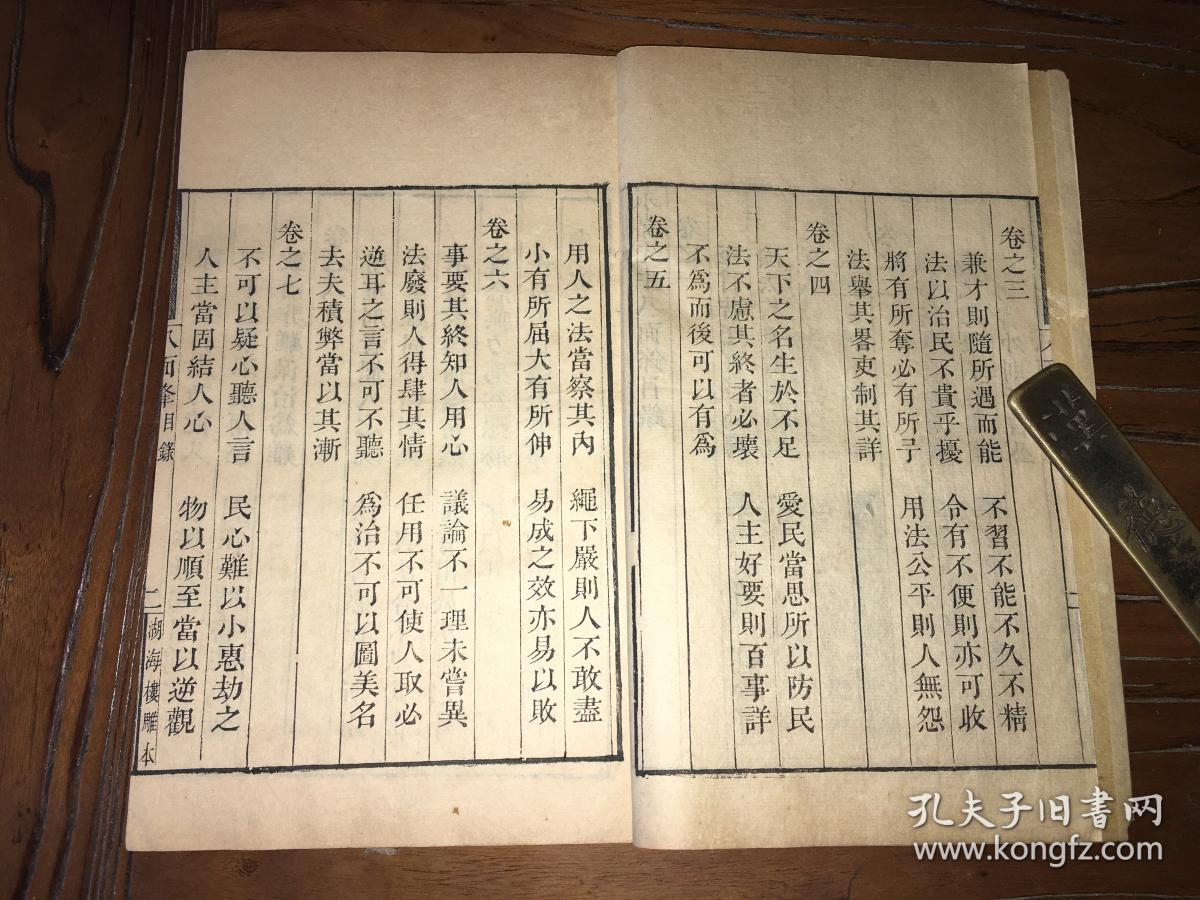 卷之三
兼才則隨所遇而能 不習不能不久不精
法以治民不貴乎擾 令有不便則亦可收
將有所奪必有所予 用法公平則人無怨
法舉其畧吏制其詳
卷之四
天下之名生於不足 愛民當思所以防民
法不慮其終者必壞 人主好要則百事詳
不爲而後可以有爲
卷之五
用人之法當察其內 繩下嚴則人不敢盡
小有所屈大有所伸 易成之效亦易以敗
卷之六
事要其終知人用心 議論不一理未嘗異
法廢則人得肆其情 任用不可使人取必
逆耳之言不可不聽 爲治不可以圖美名
去夫積弊當以其漸
卷之七
不可以疑心聽人言 民心難以小惠劫之
人主當固結人心 物以順至當以逆觀
八面鋒目錄 二 湖海樓雕本
孔夫子旧書网
www.kongfz.com